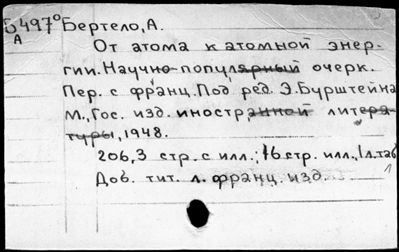 Б497⁰ Бертело, А.
А
От атома к атомной энер-
гии. Научно-популярный очерк.
Пер. с франц. Под ред. Э. Бурштейна
М., Гос. изд. иностранной литера-
туры, 1948.
206,3 стр. с илл.; 16 стр. илл., 1 л. таб
Доб. тит. л. франц. изд.
1